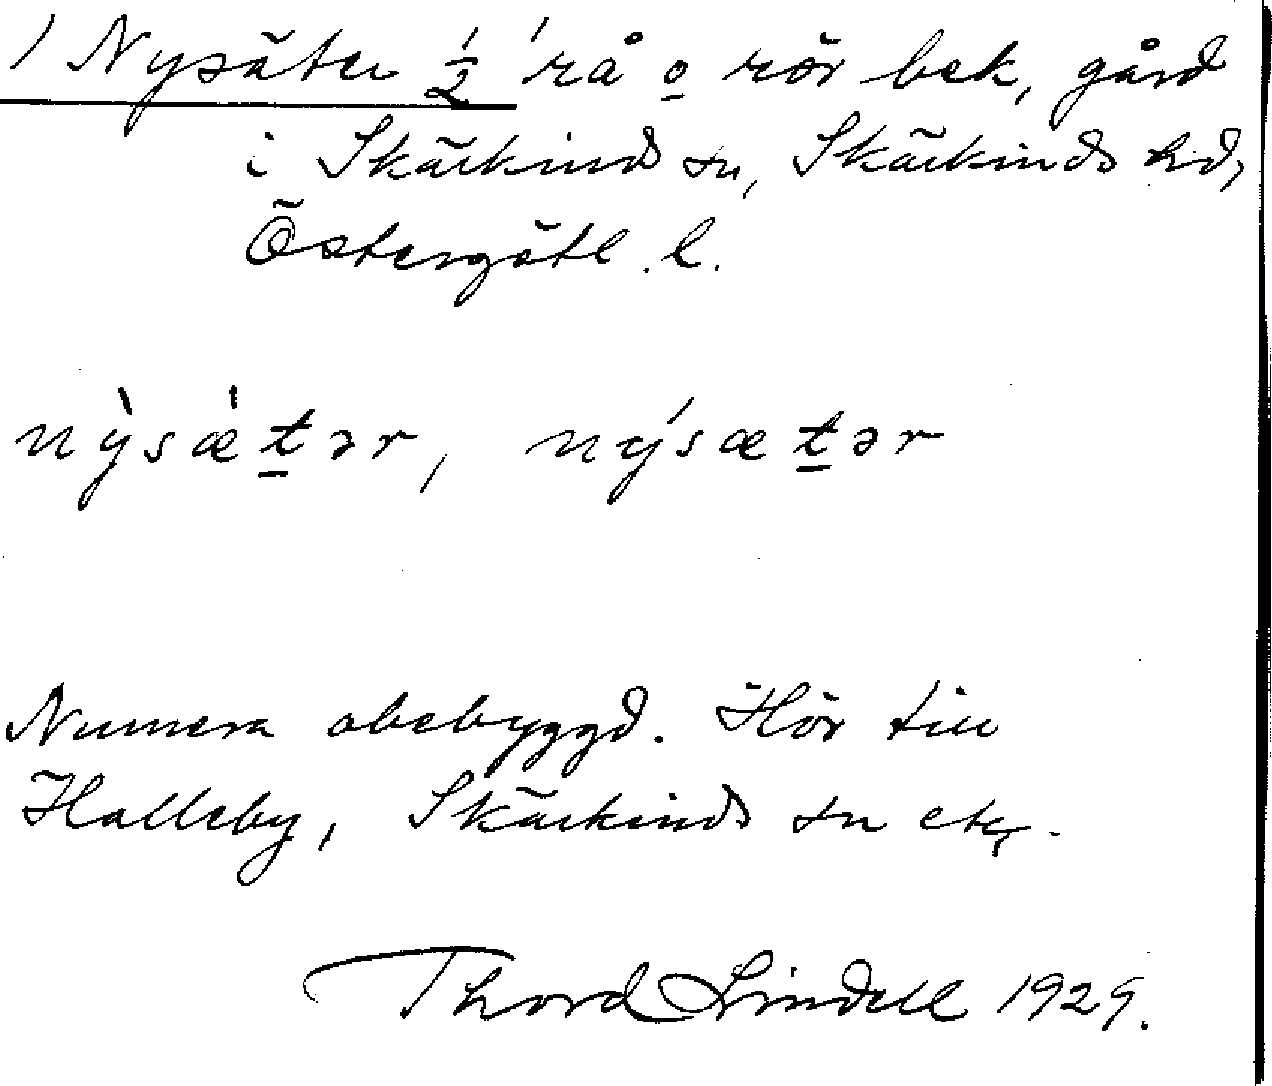 ) Nysäter ½ 'rå o rör bek, gård
i Skärkinds sn, Skärkinds hd,
Östergötl. l.
nỳsǽtər, nýsætər
Numera obebyggd. Hör till
Halleby, Skärkinds sn etc.
Thord Lindell 1929.